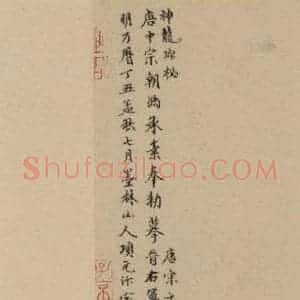 神龍珎秘
唐宋
唐中宗朝馮承素奉勅摹晉右軍
明万曆丁丑孟秋七月墨林山人項元汴審
Shufaziliao.com